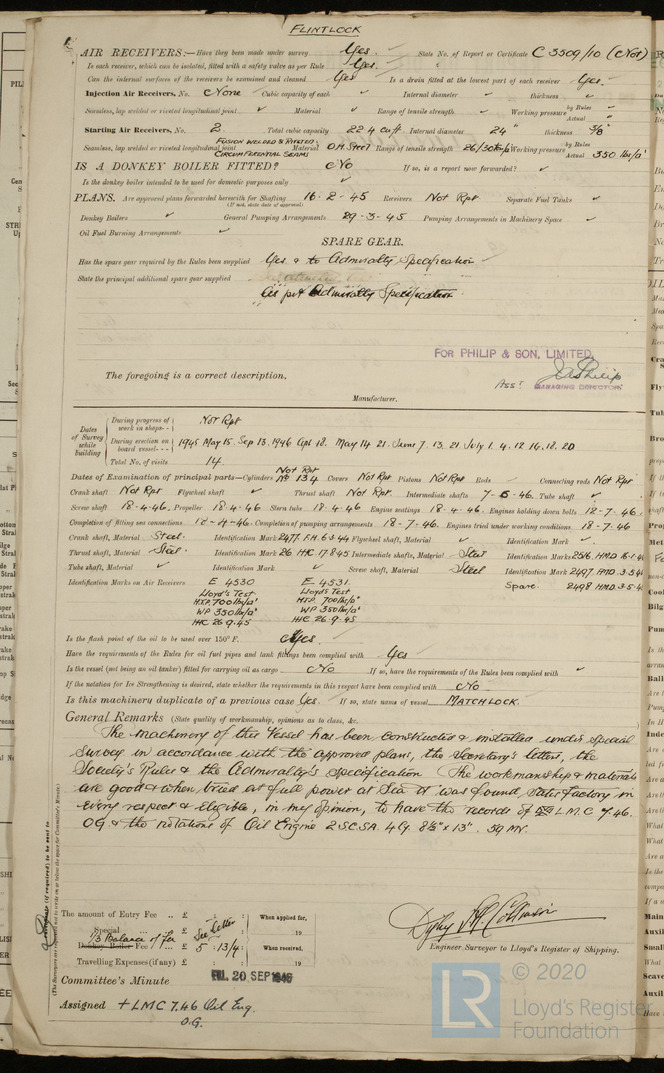 FLINTLOCK
AIR RECEIVERS:—Have they been made under survey Yes. State No. of Report or Certificate C 3509/10 (Nor)
Is each receiver, which can be isolated, fitted with a safety valve as per Rule Yes.
Can the internal surfaces of the receivers be examined and cleaned Yes Is a drain fitted at the lowest part of each receiver Yes.
Injection Air Receivers, No. None Cubic capacity of each ✓ Internal diameter ✓ thickness ✓
Seamless, lap welded or riveted longitudinal joint ✓ Material ✓ Range of tensile strength ✓ Working pressure by Rules ✓ Actual ✓
Starting Air Receivers, No. 2 Total cubic capacity 22.4 cu ft Internal diameter 24" thickness 5/8"
FUSION WELDED & RIVETED
Seamless, lap welded or riveted longitudinal joint CIRCUMFERENTIAL SEAMS Material O.H. Steel Range of tensile strength 26/30 Working pressure by Rules Actual 350 lbs/□"
IS A DONKEY BOILER FITTED? No If so, is a report now forwarded? ✓
Is the donkey boiler intended to be used for domestic purposes only ✓
PLANS. Are approved plans forwarded herewith for Shafting 16-2-45 Receivers Not Rpt Separate Fuel Tanks ✓
(If not, state date of approval)
Donkey Boilers ✓ General Pumping Arrangements 29-3-45 Pumping Arrangements in Machinery Space ✓
Oil Fuel Burning Arrangements ✓
SPARE GEAR.
Has the spare gear required by the Rules been supplied Yes & to Admiralty Specification
State the principal additional spare gear supplied
As per Admiralty Specification
FOR PHILIP & SON, LIMITED.
The foregoing is a correct description,
Asst MANAGING DIRECTOR.
Manufacturer.
Dates of Survey while building
During progress of work in shops - - Not Rpt
During erection on board vessel - - - 1945 May 15. Sep 13. 1946 Apl 18. May 14 21. June 7. 13. 21. July 1. 4. 12. 16. 18. 20
Total No. of visits 14
Dates of Examination of principal parts—Cylinders Not Rpt No 134 Covers Not Rpt Pistons Not Rpt Rods Connecting rods Not Rpt
Crank shaft Not Rpt Flywheel shaft ✓ Thrust shaft Not Rpt. Intermediate shafts 7-6-46. Tube shaft ✓
Screw shaft 18-4-46. Propeller 18-4-46 Stern tube 18-4-46 Engine seatings 18-4-46. Engines holding down bolts 12-7-46.
Completion of fitting sea connections 12-4-46. Completion of pumping arrangements 18-7-46. Engines tried under working conditions 18-7-46
Crank shaft, Material Steel. Identification Mark 2477. F.H. 6.5.44 Flywheel shaft, Material ✓ Identification Mark ✓
Thrust shaft, Material Steel. Identification Mark 26 HHC 17845 Intermediate shafts, Material Steel Identification Marks 2516. HMD.
Tube shaft, Material ✓ Identification Mark ✓ Screw shaft, Material Steel Identification Mark 2497. HMD. 3.5.4
Identification Marks on Air Receivers E 4530 E 4531. Spare. 2498 HMD. 3.5.4
Lloyd's Test Lloyd's Test
H.T.P. 700 lbs/□" HTP. 700 lbs/□"
WP 350 lbs/□" WP 350 lbs/□"
HHC 26.9.45 HHC 26.9.45
Is the flash point of the oil to be used over 150° F. Yes.
Have the requirements of the Rules for oil fuel pipes and tank fittings been complied with Yes
Is the vessel (not being an oil tanker) fitted for carrying oil as cargo No If so, have the requirements of the Rules been complied with ✓
If the notation for Ice Strengthening is desired, state whether the requirements in this respect have been complied with No.
Is this machinery duplicate of a previous case Yes. If so, state name of vessel MATCHLOCK.
General Remarks (State quality of workmanship, opinions as to class, &c.
The machinery of this Vessel has been constructed & installed under special
Survey in accordance with the approved plans, the Secretary's letters, the
Society's Rules & the Admiralty's Specification The workmanship & materials
are good & when tried at full power at Sea it was found satisfactory in
every respect & eligible, in my opinion, to have the records of LMC 7.46.
OG & the notations of Oil Engine 2SCSA 4Cy. 8½" x 13". 59 MN.
The amount of Entry Fee .. £ : :
Special .. £ See letter
1/3 Balance of Fee
Donkey Boiler Fee £ 5 : 13/4 :
Travelling Expenses (if any) £ : :
When applied for, 19
When received, 19
Engineer Surveyor to Lloyd's Register of Shipping.
Committee's Minute FRI. 20 SEP 1946
Assigned + LMC 7.46 Oil Eng.
O.G.
LR
© 2020
Lloyd's Register
Foundation